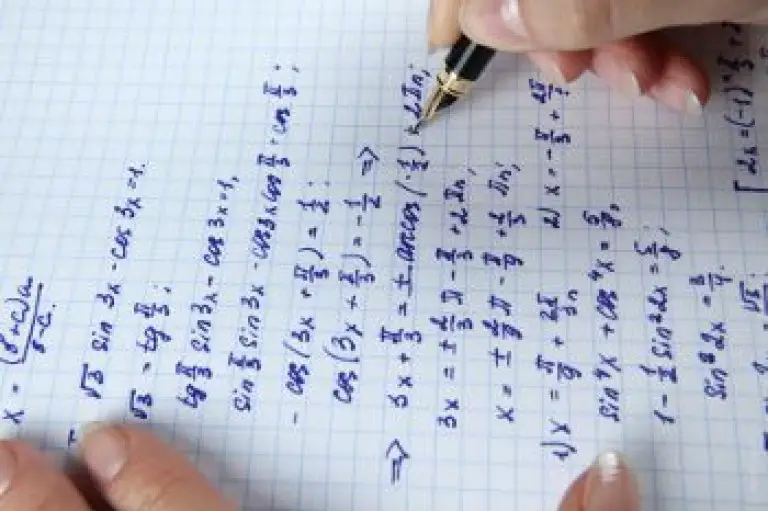 x = (b+c)a/b-c.
√3 sin 3x - cos 3x = 1.
√3 = tg π/3;
tg π/3 sin 3x - cos 3x = 1,
sin π/3 sin 3x - cos 3x cos π/3 = cos π/3;
- cos(3x + π/3) = 1/2;
cos(3x + π/3) = -1/2 =>
=> 3x + π/3 = ± arccos(-1/2) + 2πn;
3x = ± 2/3 π - π/3 + 2πn;
x = ± 2/9 π - π/9 + 2/3 πn;
1) x = π/9 + 2π/3n 2) x = -π/3 + 2π
sin⁴x + cos⁴x = 5/8;
1 - 1/2 sin²2x = 5/8;
sin²2x = 3/4
[2x = (-1)ⁿ π/3 +